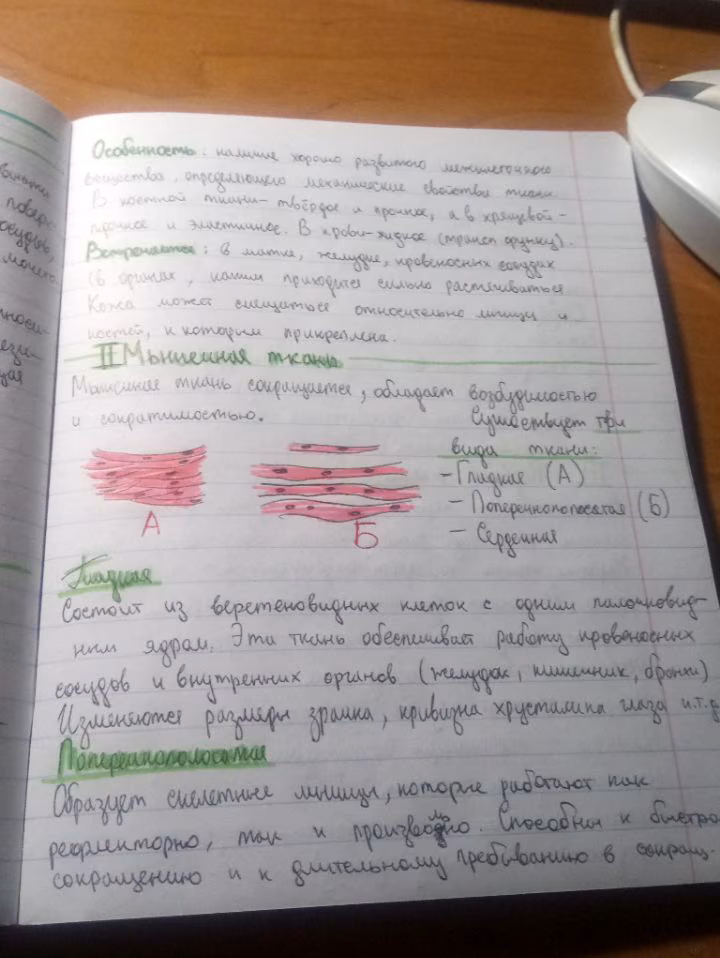 Особенность: наличие хорошо развитого межклеточного
вещества, определяющего механические свойства ткани.
В костной ткани - твёрдое и прочное, а в хрящевой -
прочное и эластичное. В крови - жидкое (трансп. функц.).
Встречается: в матке, желудке, кровеносных сосудах
(в органах, каким приходится сильно растягиваться
Кожа может смещаться относительно мышц и
костей, к которым прикреплена.
II Мышечная ткань
Мышечная ткань сокращается, обладает возбудимостью
и сократимостью. Существует три
вида ткани:
- Гладкая (А)
- Поперечнополосатая (Б)
- Сердечная
А
Б
Гладкая
Состоит из веретеновидных клеток с одним палочковид-
ным ядром. Эта ткань обеспечивает работу кровеносных
сосудов и внутренних органов (желудок, кишечник, бронхи)
Изменяются размеры зрачка, кривизна хрусталика глаза и.т.д
Поперечнополосатая
Образует скелетные мышцы, которые работают как
рефлекторно, так и произвольно. Способны к быстро
сокращению и к длительному пребыванию в сокращ.
вещества
повер-
сосудов,
ези-
щая